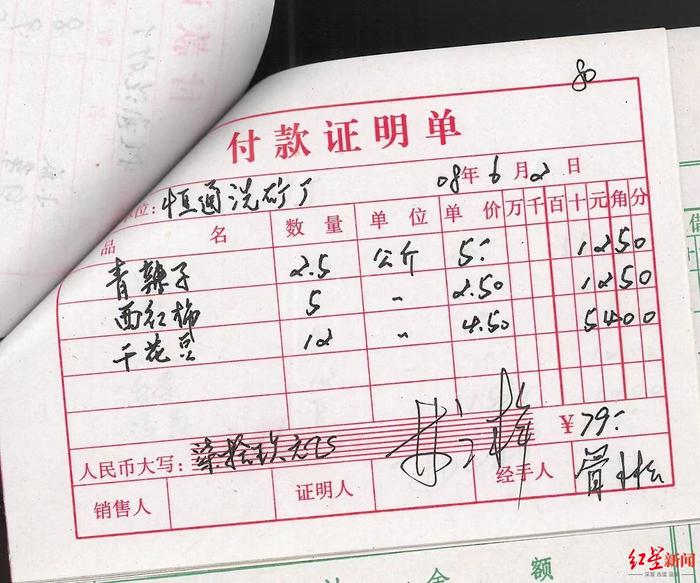 80
付款证明单
位: 恒通洗矿厂 08年6月2日
品名 数量 单位 单价 万千百十元角分
青辣子 2.5 公斤 5- 1250
西红柿 5 〃 2.50 1250
干花豆 12 〃 4.50 5400
人民币大写: 柒拾玖元 ¥79-
销售人 证明人 经手人
金 额
红星新闻
深度 态度 温度